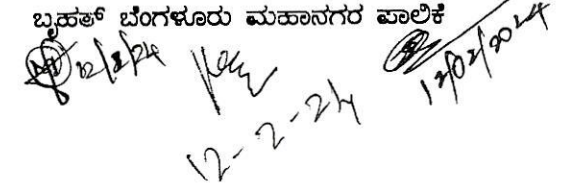 ಬೃಹತ್ ಬೆಂಗಳೂರು ಮಹಾನಗರ ಪಾಲಿಕೆ
12/2/24
12/02/2024
12-2-24